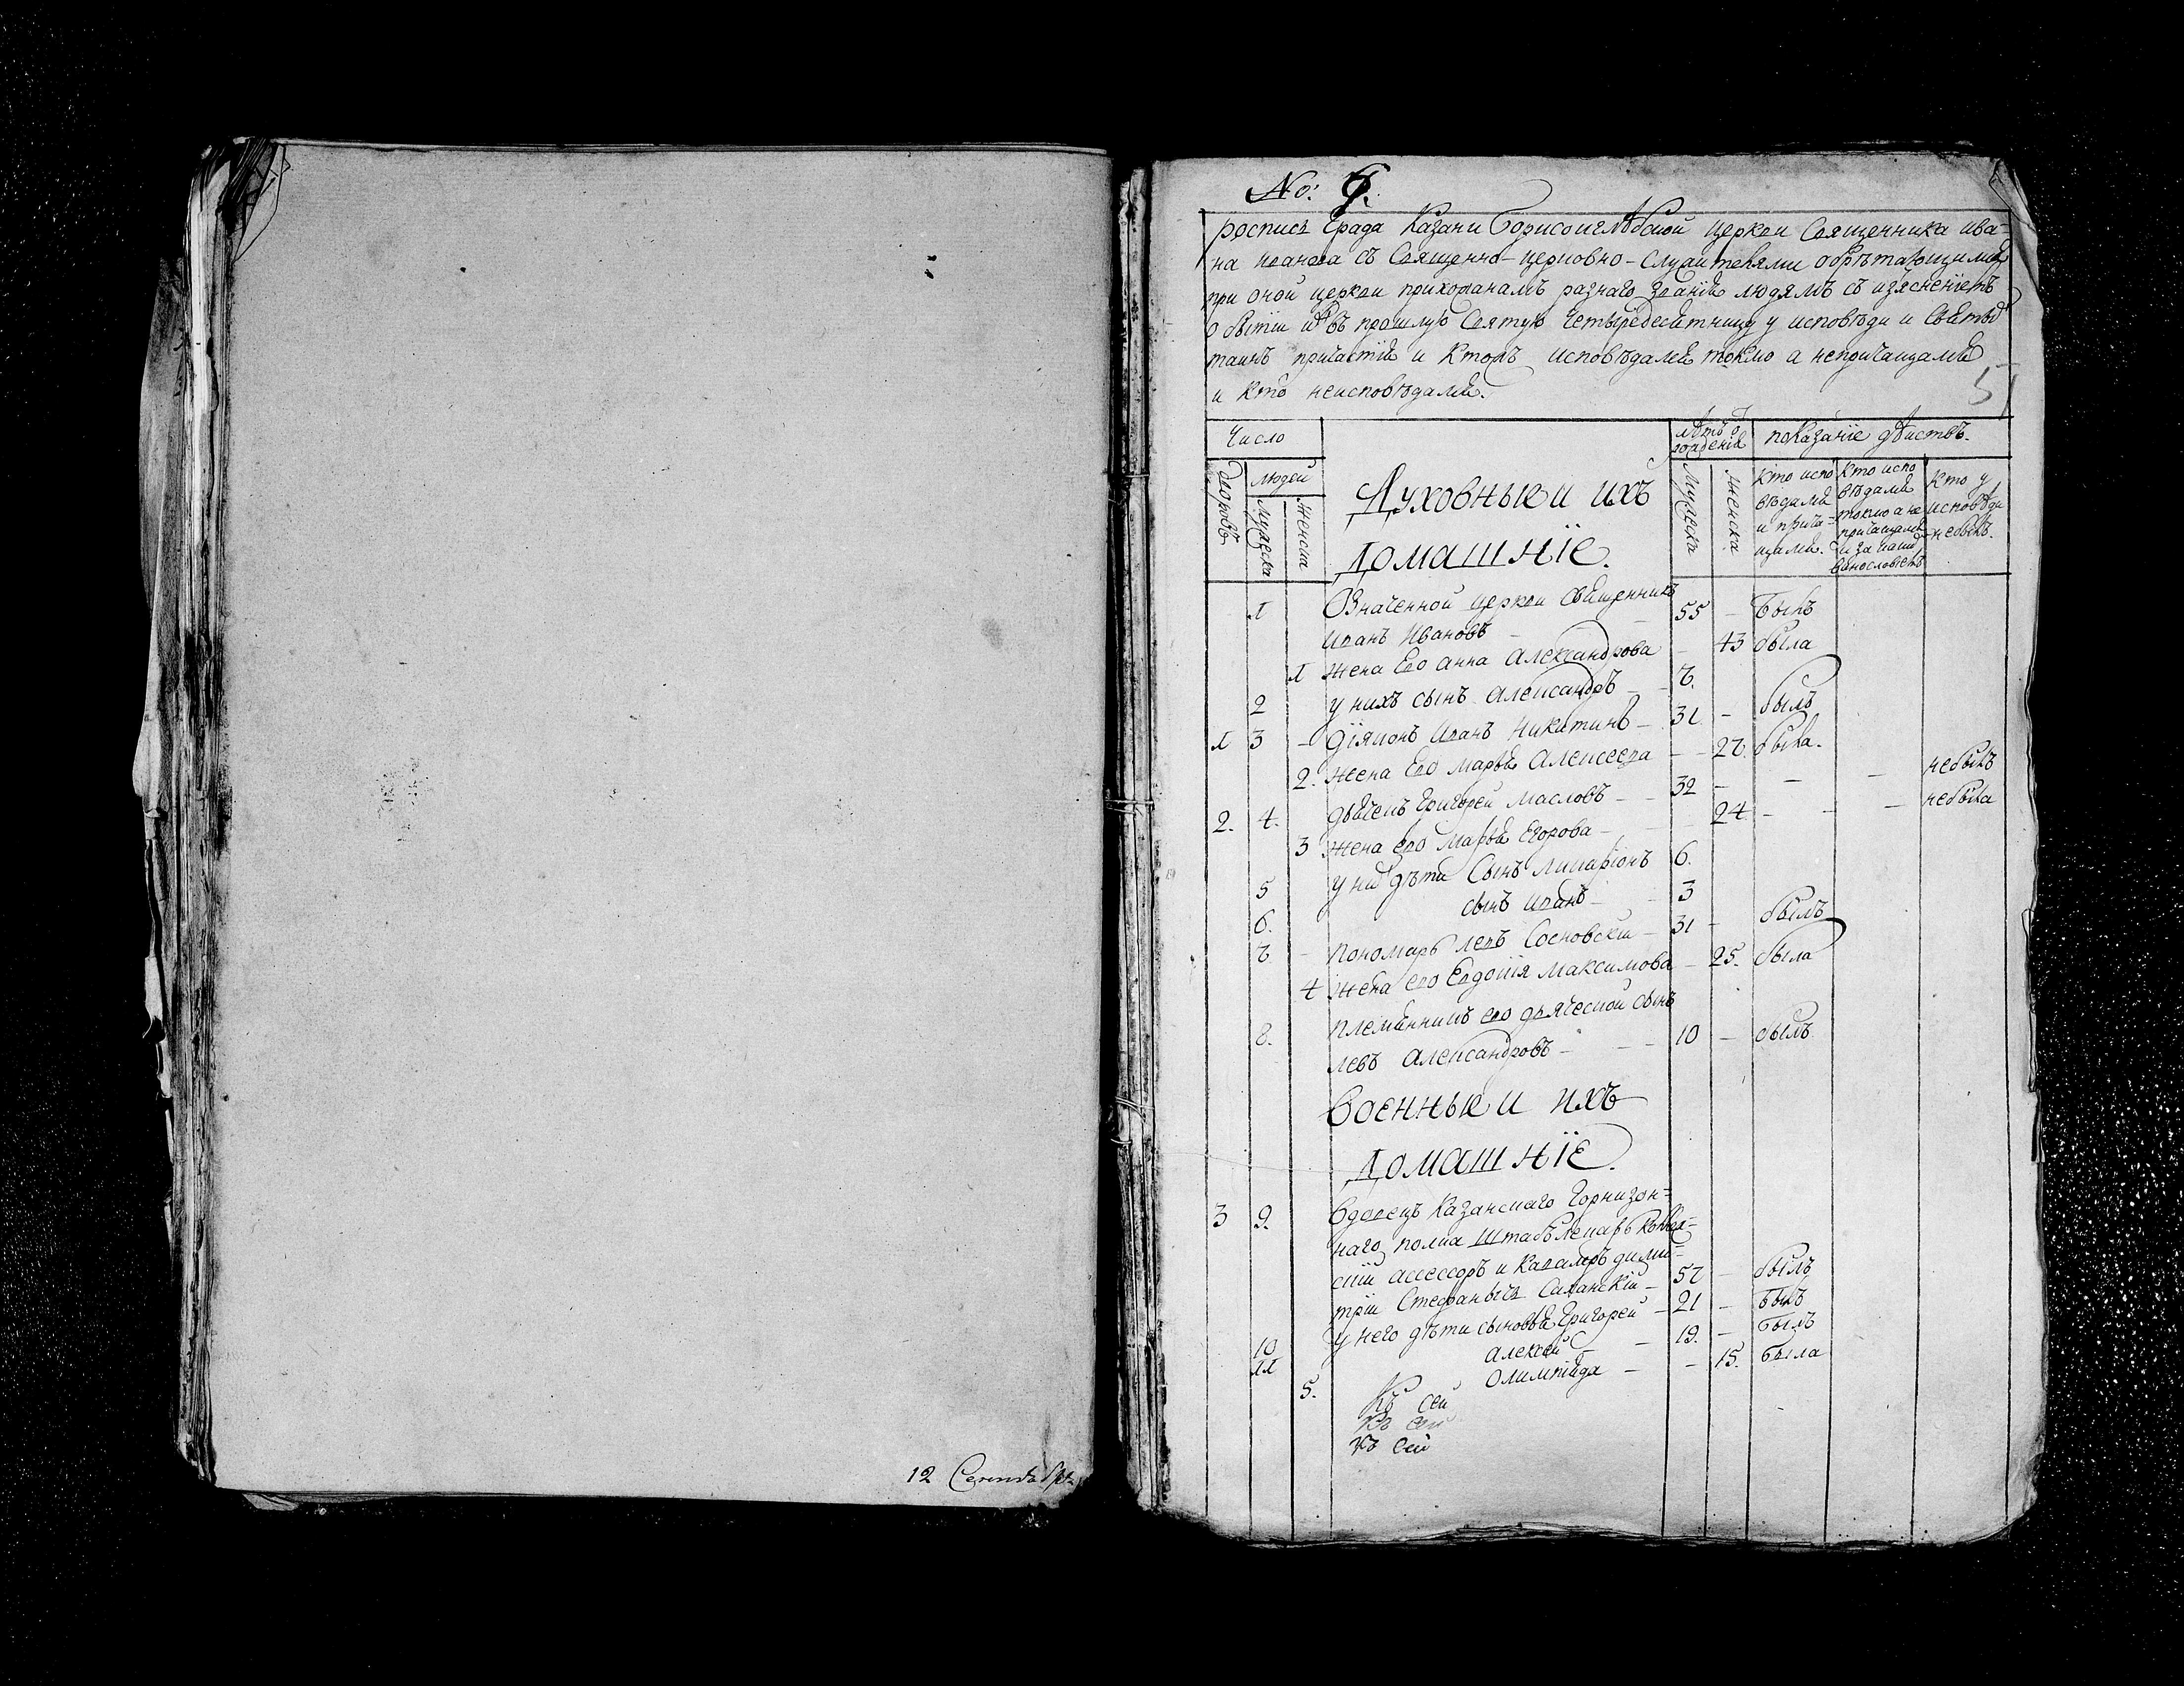 12
No: 7.
роспись Града Казани Борисоглѣбской церкви Священника ива-
на иванова съ Священно-церковно-служителями обрѣтающимся
при оной церкви прихожанамъ разнаго званія людямъ съ изясненіемъ
о бытіи ихъ въ прошлую Святую четыредесятницу у исповѣди и Святыхъ
таинъ причастія и ктожъ исповѣдался токмо а непричащался
и кто неисповѣдался.
Число
лѣтъ о рожденія
показаніе дѣиствъ.
дворовъ
людей
мужеска
женска
Духовныя и ихъ
Домашніе.
мужеска
женска
Кто испо
вѣдался
и прича-
щался.
Кто испо
вѣдался
токмо а не
причащался
и за какимъ
винословіемъ
Кто у
исповѣди
небылъ.
1 Означенной церкви священникъ
иванъ Ивановъ — 55 — былъ
1 жена Его анна Александрова — 43 была
2 у нихъ сынъ Александръ — 7.
1 3 — діяконъ иванъ Никитинъ — 31 — былъ
2. жена Его марья Алексеева — 27. была.
2. 4. дьячекъ Григорей масловъ — 32 — — — небылъ
3 жена его марья Егорова — 24 — — — небыла
5 у нихъ дѣти Сынъ иларіонъ 6.
6. сынъ иванъ — 3
7 — пономарь левъ Сосновскіи — 31 — былъ
4 жена его Евдокія максимова — 25. была
8. племянникъ его дьяческой сынъ
левъ александровъ — 10 — былъ
Военныя и ихъ
Домашніе.
3 9. Вдовецъ Казанскаго Горнизон-
наго полка штабълекарь Коллеж-
скіи ассессоръ и кавалеръ дими-
тріи Стефанычь Саханскіи — 57 — былъ
10 у него дѣти сыновья Григорей — 21 — былъ
11 алексѣй — 19. — былъ
5. Олимпіяда — — 15. была
Къ сей
Къ сей
къ сей